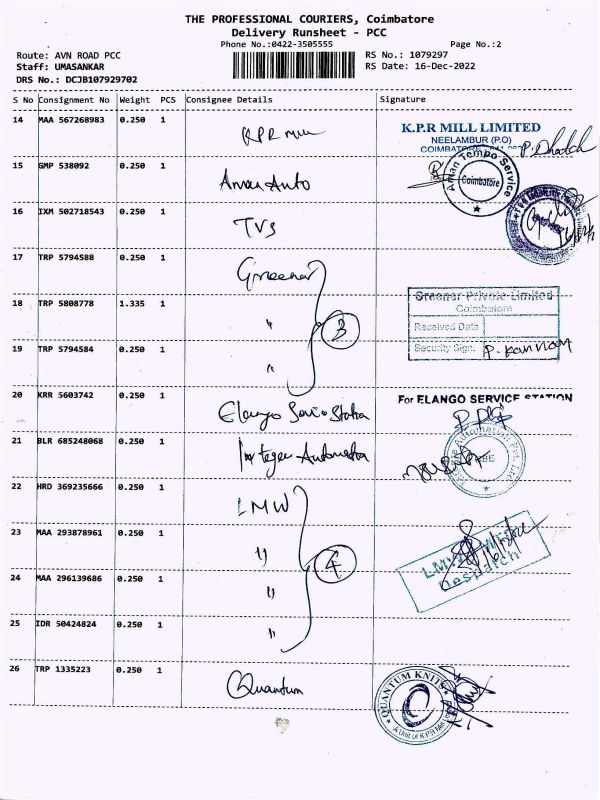 THE PROFESSIONAL COURIERS, Coimbatore
Delivery Runsheet - PCC
Phone No.:0422-3505555 Page No.:2
Route: AVN ROAD PCC RS No.: 1079297
Staff: UMASANKAR RS Date: 16-Dec-2022
DRS No.: DCJB107929702
S No Consignment No Weight PCS Consignee Details Signature
14 MAA 567268983 0.250 1 KPR Mill K.P.R MILL LIMITED
NEELAMBUR (P.O)
COIMBATORE
15 GMP 538092 0.250 1 Aman Auto Aman Tempo Service
Coimbatore
16 IXM 502718543 0.250 1 TVS
17 TRP 5794588 0.250 1 Greener
18 TRP 5808778 1.335 1 " 3 Greener Private Limited
Coimbatore
Received Date
19 TRP 5794584 0.250 1 " Security Sign. P. Kannan
20 KRR 5603742 0.250 1 Elango Service Station For ELANGO SERVICE STATION
21 BLR 685248068 0.250 1 Integer Automation
22 HRD 369235666 0.250 1 LMW
23 MAA 293878961 0.250 1 "
4
24 MAA 296139686 0.250 1 " Despatch
25 IDR 50424824 0.250 1 "
26 TRP 1335223 0.250 1 Quantum QUANTUM KNITS
A Unit of K.P.R Mill